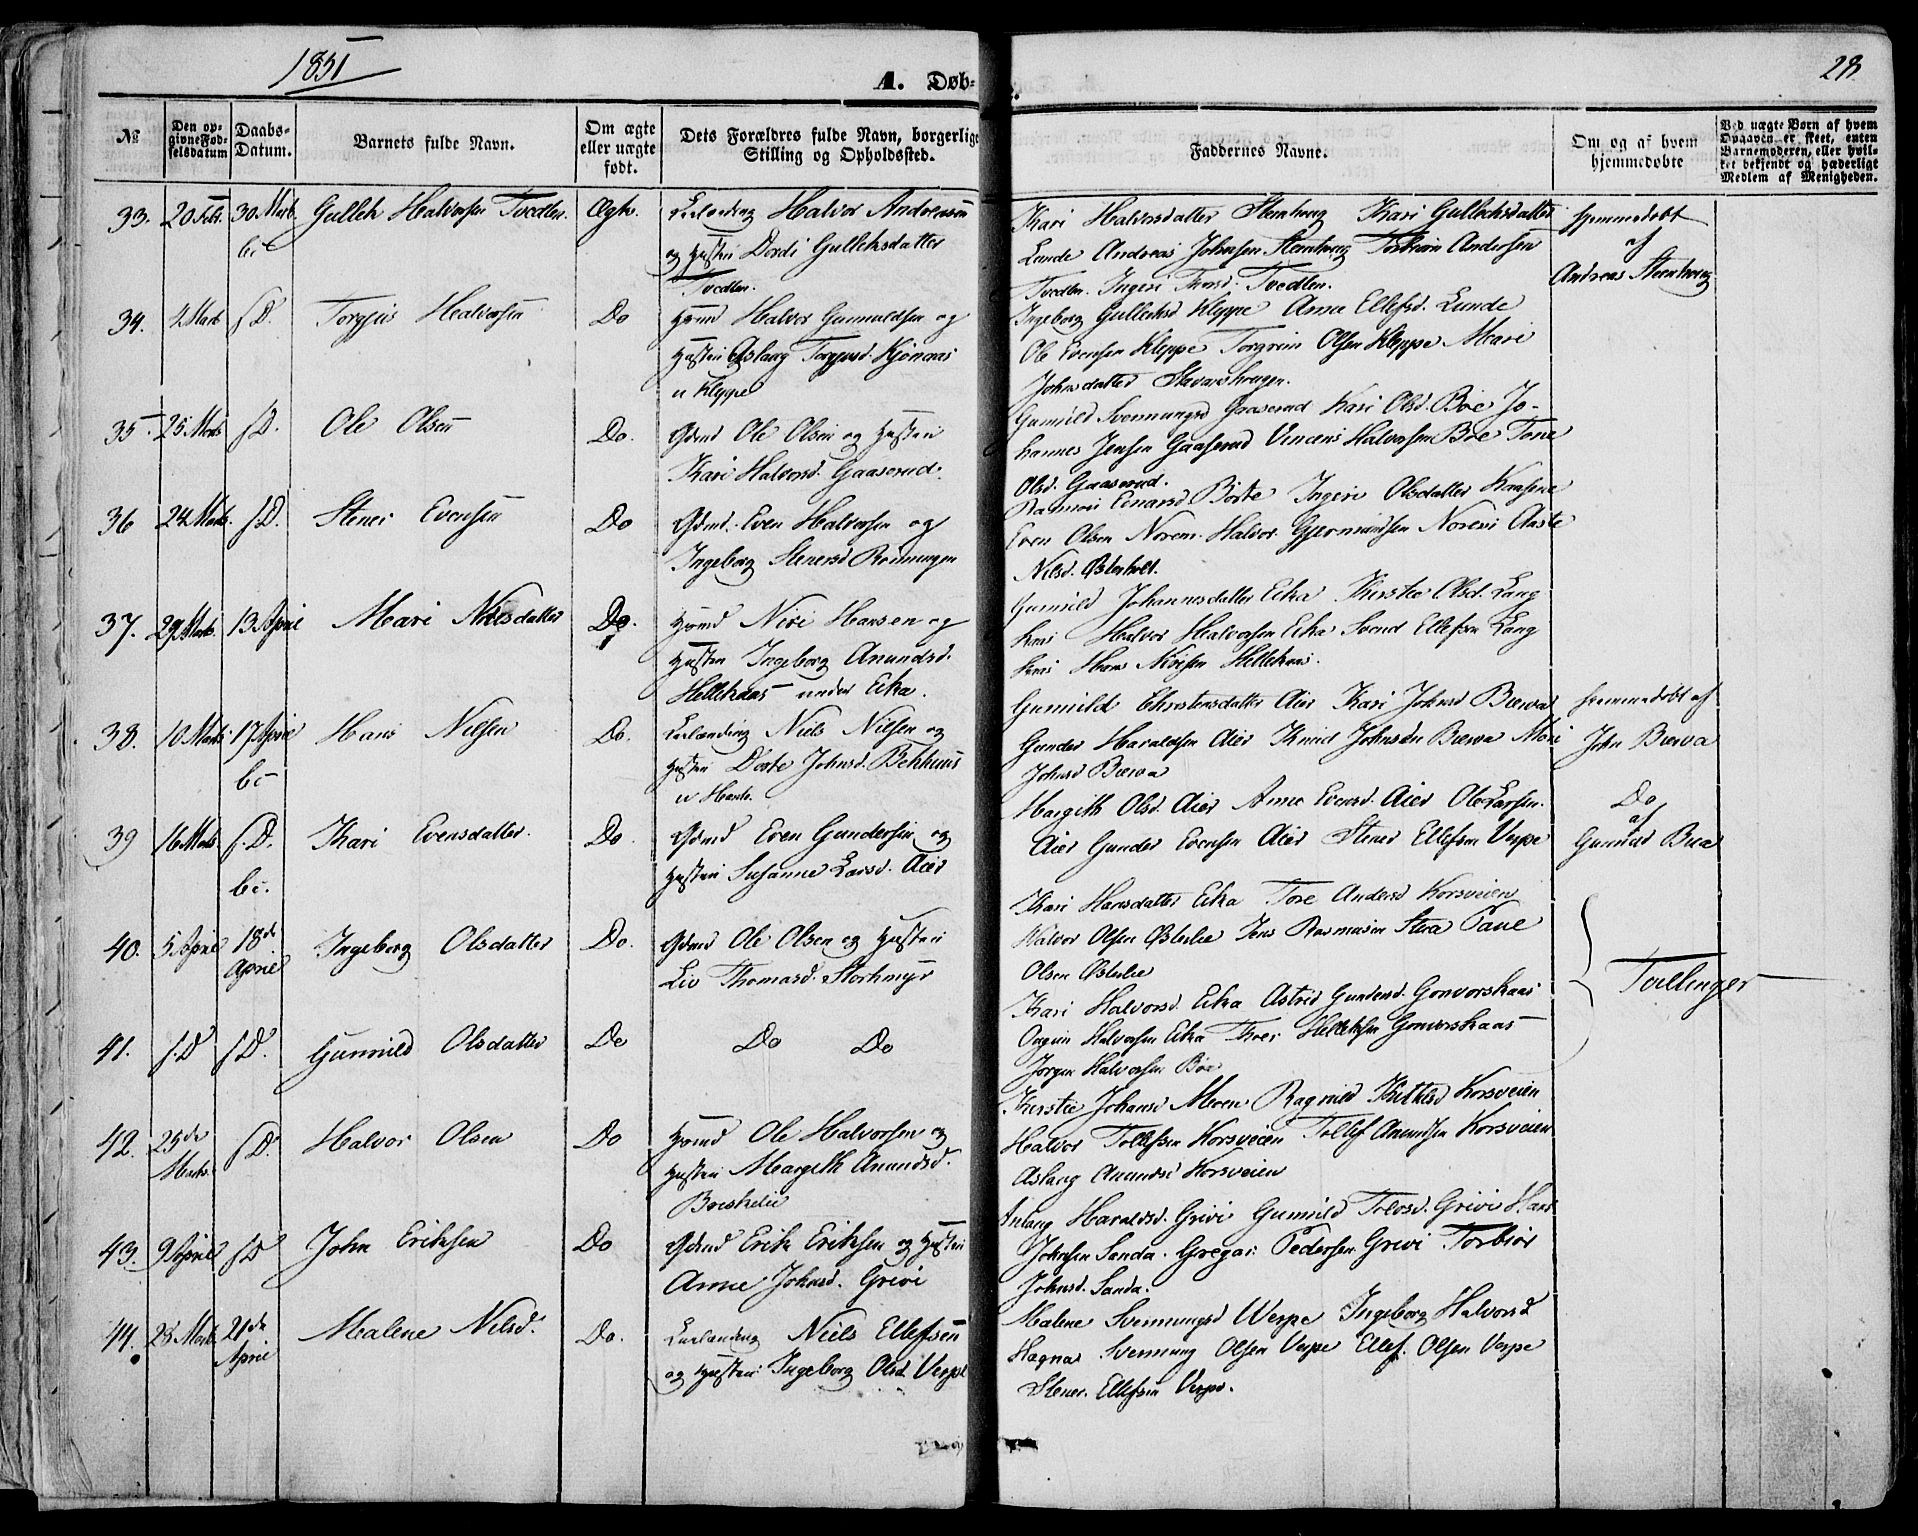 1851
28
A. Døb-
№
Den op-
givne Fød-
selsdatum
Daabs-
Datum.
Barnets fulde Navn.
Om ægte
eller uægte
født.
Dets Forældres fulde Navn, borgerlige
Stilling og Opholdssted.
Faddernes Navne.
Om og af hvem
hjemmedøbte
Ved uægte Børn af hvem
Opgaven er skeet, enten
Barnemoderen, eller hvil-
ket bekjendt og hæderligt
Medlem af Menigheden.
33. 20 Febr. 30 Marts Gullek Halvorsen Tvedten. Ægte. Halvor Andreasen
og Hustru Dordi Gulleksdatter
Tvedten.
Kari Halvorsdatter Kari Gulleksdatter
Lunde Andreas Johnsen Andersen
Tvedten. Ingeri Tvedten.
Hjemmedøbt
af
Andreas
34. 4 Marts s.D. Torgius Halvorsen Do Hmd Halvor Gunnuldsen og
Hustru Aslaug Torgiusd. Kjønnaas
u Kleppe
Ingeborg Gulleksd Kleppe Anne Ellefsd. Lunde
Ole Evensen Kleppe Torgrim Olsen Kleppe Mari
Johnsdatter
35. 25 Marts s.D. Ole Olsen Do. Gdmd Ole Olsen og Hustru
Kari Halvorsd. Gaaserud.
Gunnild Svennungsd Gaaserud Kari Olsd. Bøe Jo-
hannes Jensen Gaaserud Vincens Halvorsen Bøe Tone
Olsd. Gaaserud.
36 24 Marts. s.D. Stener Evensen Do Gdmd. Even Halvorsen og
Ingeborg Stenersd Rønningen
Einarsd. Børte Ingeri Olsdatter Kaasene
Even Olsen Norem. Halvor Gjermundsen Aaste
Nilsd. Østerholt.
37. 29 Marts 13 April Mari Nirisdatter Do. Hmd Niri Hansen og
Hustru Ingeborg Anundsd.
Hellekaas under Eika.
Gunnild Johannesdatter Eika Kirstie Olsd. Lang
kaas Halvor Halvorsen Eika Svend Ellefsen Lang
kaas Hans Nirisen Hellekaas.
38. 10 Marts 17 April Hans Nilsen Do. Niels Nilsen og
Hustru Dorte Johnsd. Bekhuus
Gunnild Christensdatter Aier Kari Johnsd Bæeva
Gunder Haraldsen Aier Knud Johnsøn Bæeva Mari
Johnsd Bæeva
hjemmedøbt af
John Bæeva
39 16 Marts s.D. Kari Evensdatter. Do. Gdmd Even Gundersen og
Hustru Susanne Larsd. Aier
Margith Olsd. Aier Anne Evensd. Aier Ole Larsen.
Aier Gunder Evensen Aier Stener Ellefsen Verpe
Do
af
Gunnild Bæeva
40. 5 April 18de
April Ingeborg Olsdatter Do. Gdmd Ole Olsen og Hustru
Liv Thomasd. Storkmyr
Kari Hansdatter Eika Tore Andersd Korsveien
Halvor Olsen Østerlie Jens Rasmusen Paul
Olsen Østerlie
Tvillinger
41. s.D s.D. Gunnild Olsdatter Do Do Do
Kari Halvorsd. Eika Astrid Gundersd. Gonvorskaas
Halvorsen Eika Thor Hellekssen Gonvorskaas
Jørgen Halvorsen Bøe
42. 25de
Marts. s.D. Halvor Olsen Do Hmd Ole Halvorsen og
Hustru Margith Anundsd.
Kirstie Johansd Moen. Ragnild Kittilsd Korsveien
Halvor Tollefsen Korsveien Tollef Anundsen Korsveien
Aslaug Anundsd Korsveien
43. 9 April s.D John Eriksen Do Gdmd Erik Eriksen og Hustru
Anne Johnsd. Grivi
Haraldsd. Grivi Gunnild Grivi
Johnsen Sanda. Gregar Pedersen Grivi Torbiør
Johnsd. Sanda.
44. 28 Marts. 21de
April Malene Nilsd. Do. Niels Ellefsen
og Hustru Ingeborg Olsd Verpe
Malene Svennungsd Verpe Ingeborg Halvorsd
Hægna Svennung Olsen Verpe Ellef Olsen Verpe
Stener. Ellefsen Verpe.